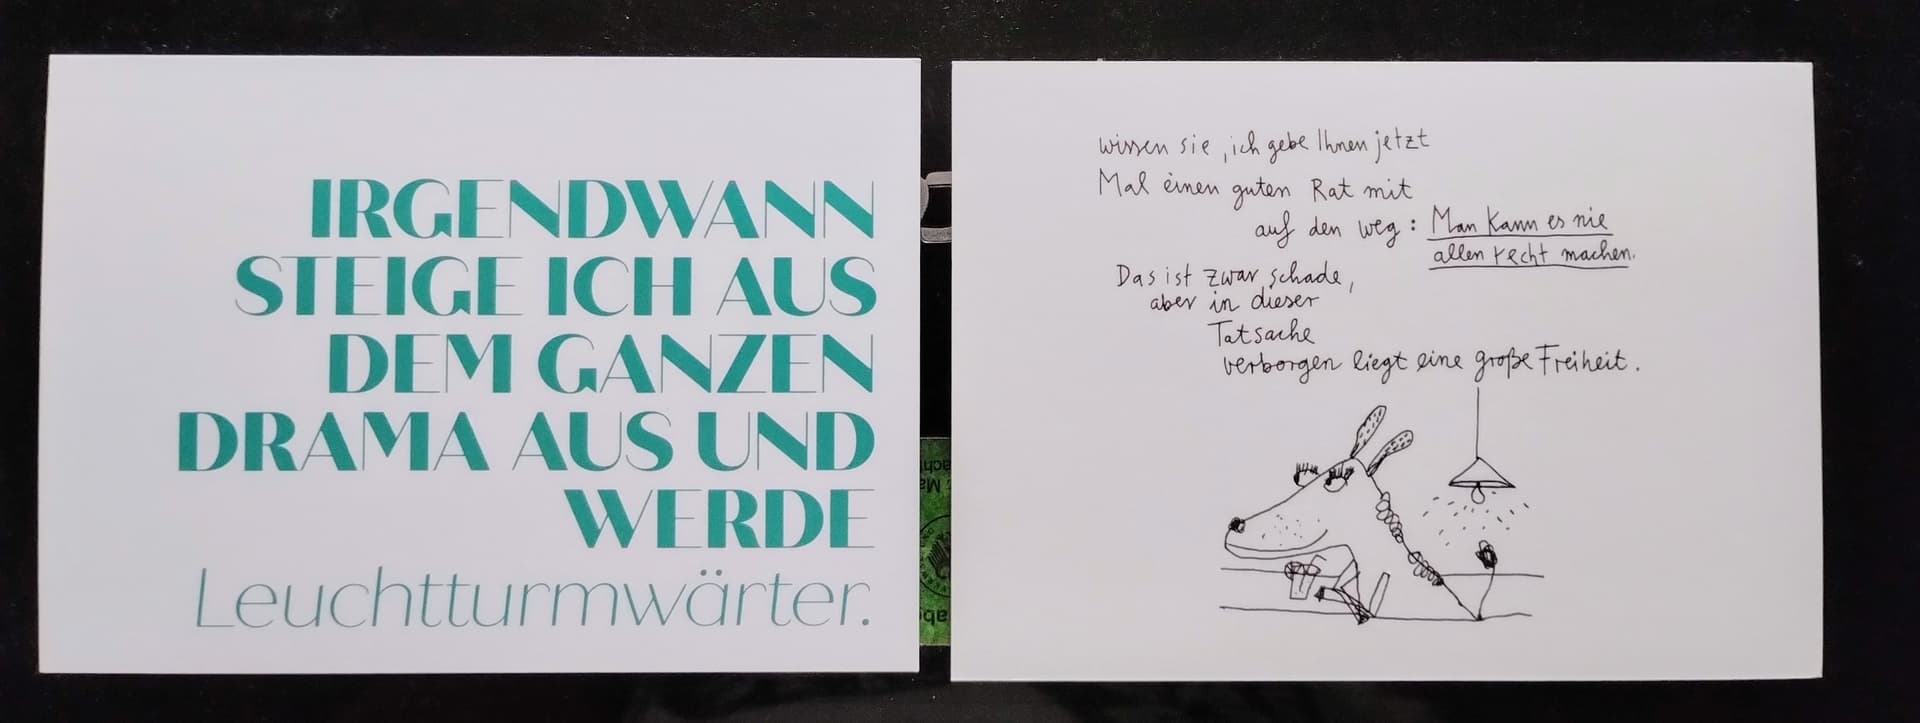 IRGENDWANN
STEIGE ICH AUS
DEM GANZEN
DRAMA AUS UND
WERDE
Leuchtturmwärter.
wissen sie, ich gebe Ihnen jetzt
Mal einen guten Rat mit
auf den weg: Man kann es nie
allen recht machen.
Das ist zwar schade,
aber in dieser
Tatsache
verborgen liegt eine große Freiheit.